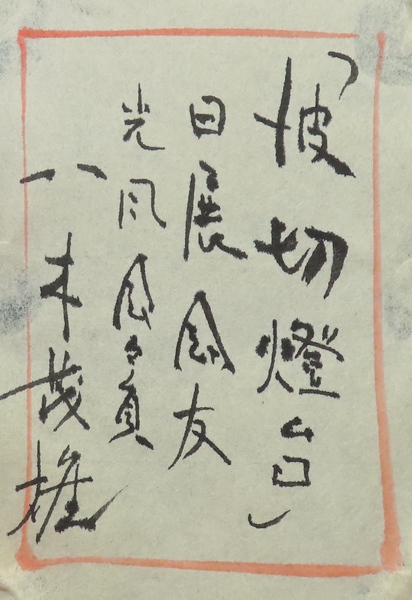 「波切燈台」
日展会友
光風会会員
八木茂雄